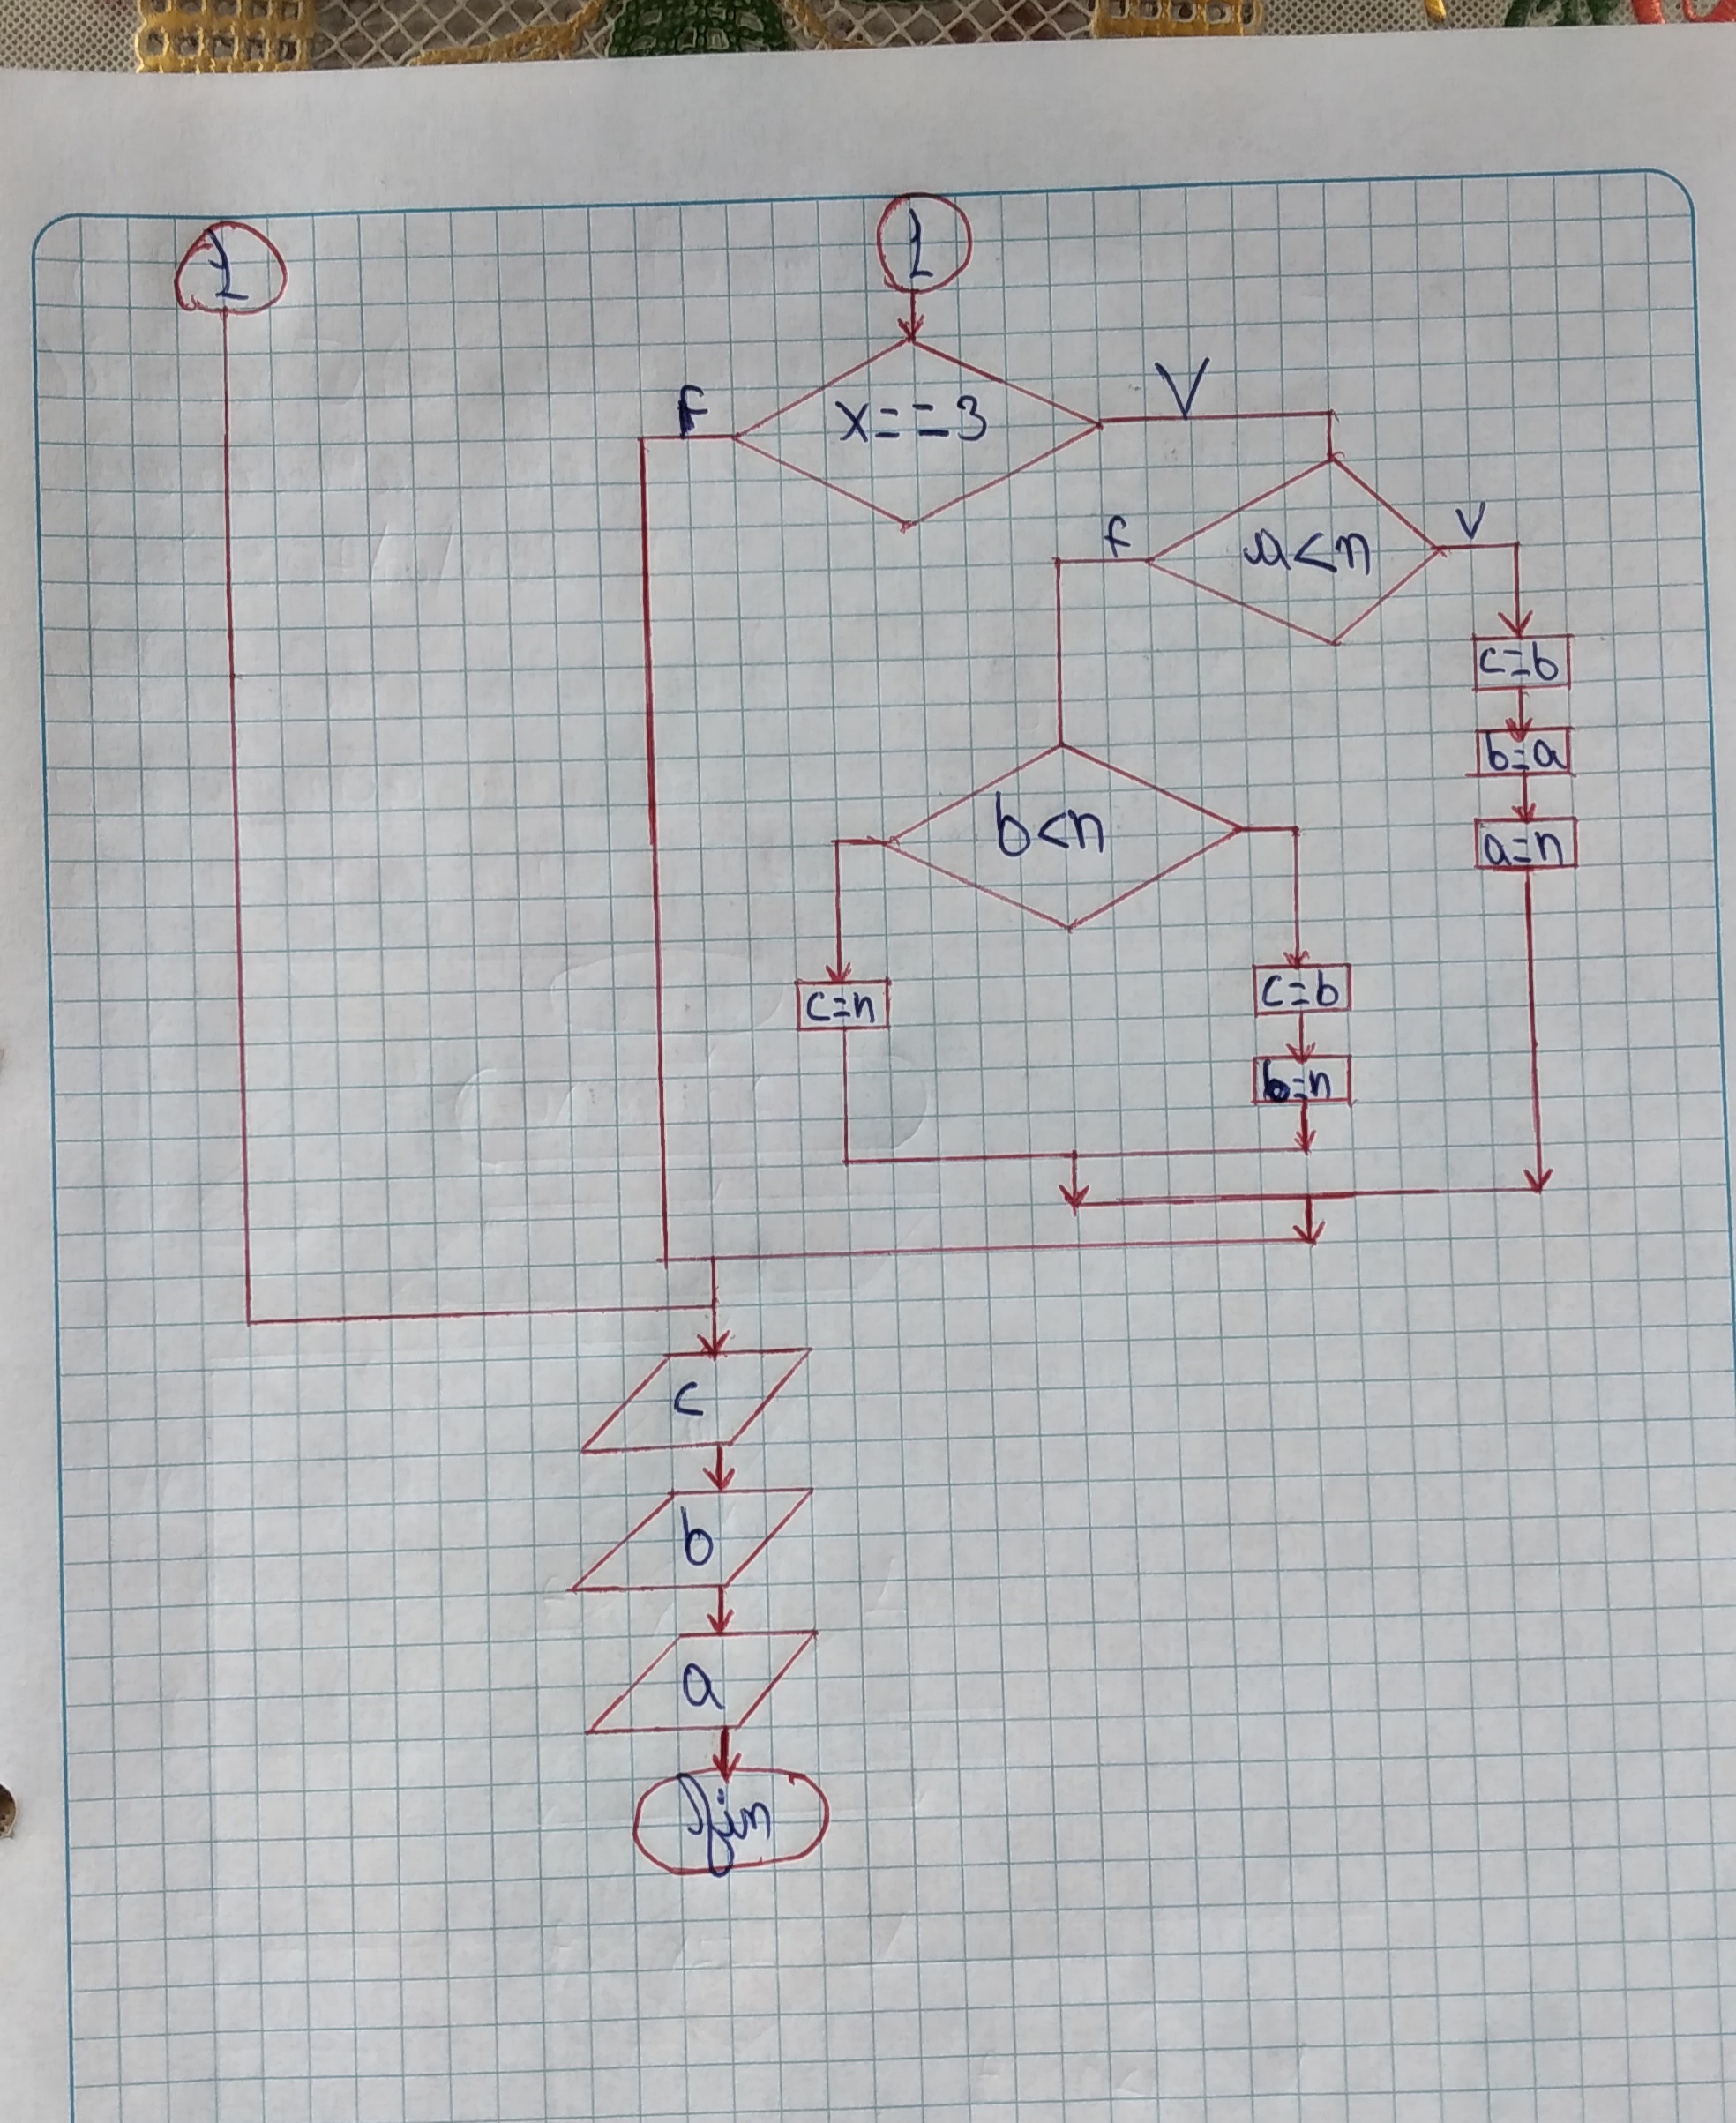 1
1
x==3
F
V
a<n
F
V
c=b
b=a
a=n
b<n
c=n
c=b
b=n
c
b
a
fin